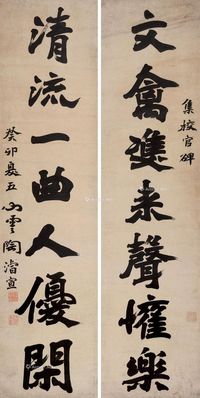 集校官碑
文禽進来聲懽樂
清流一曲人優閑
癸卯夏五心雲陶濬宣